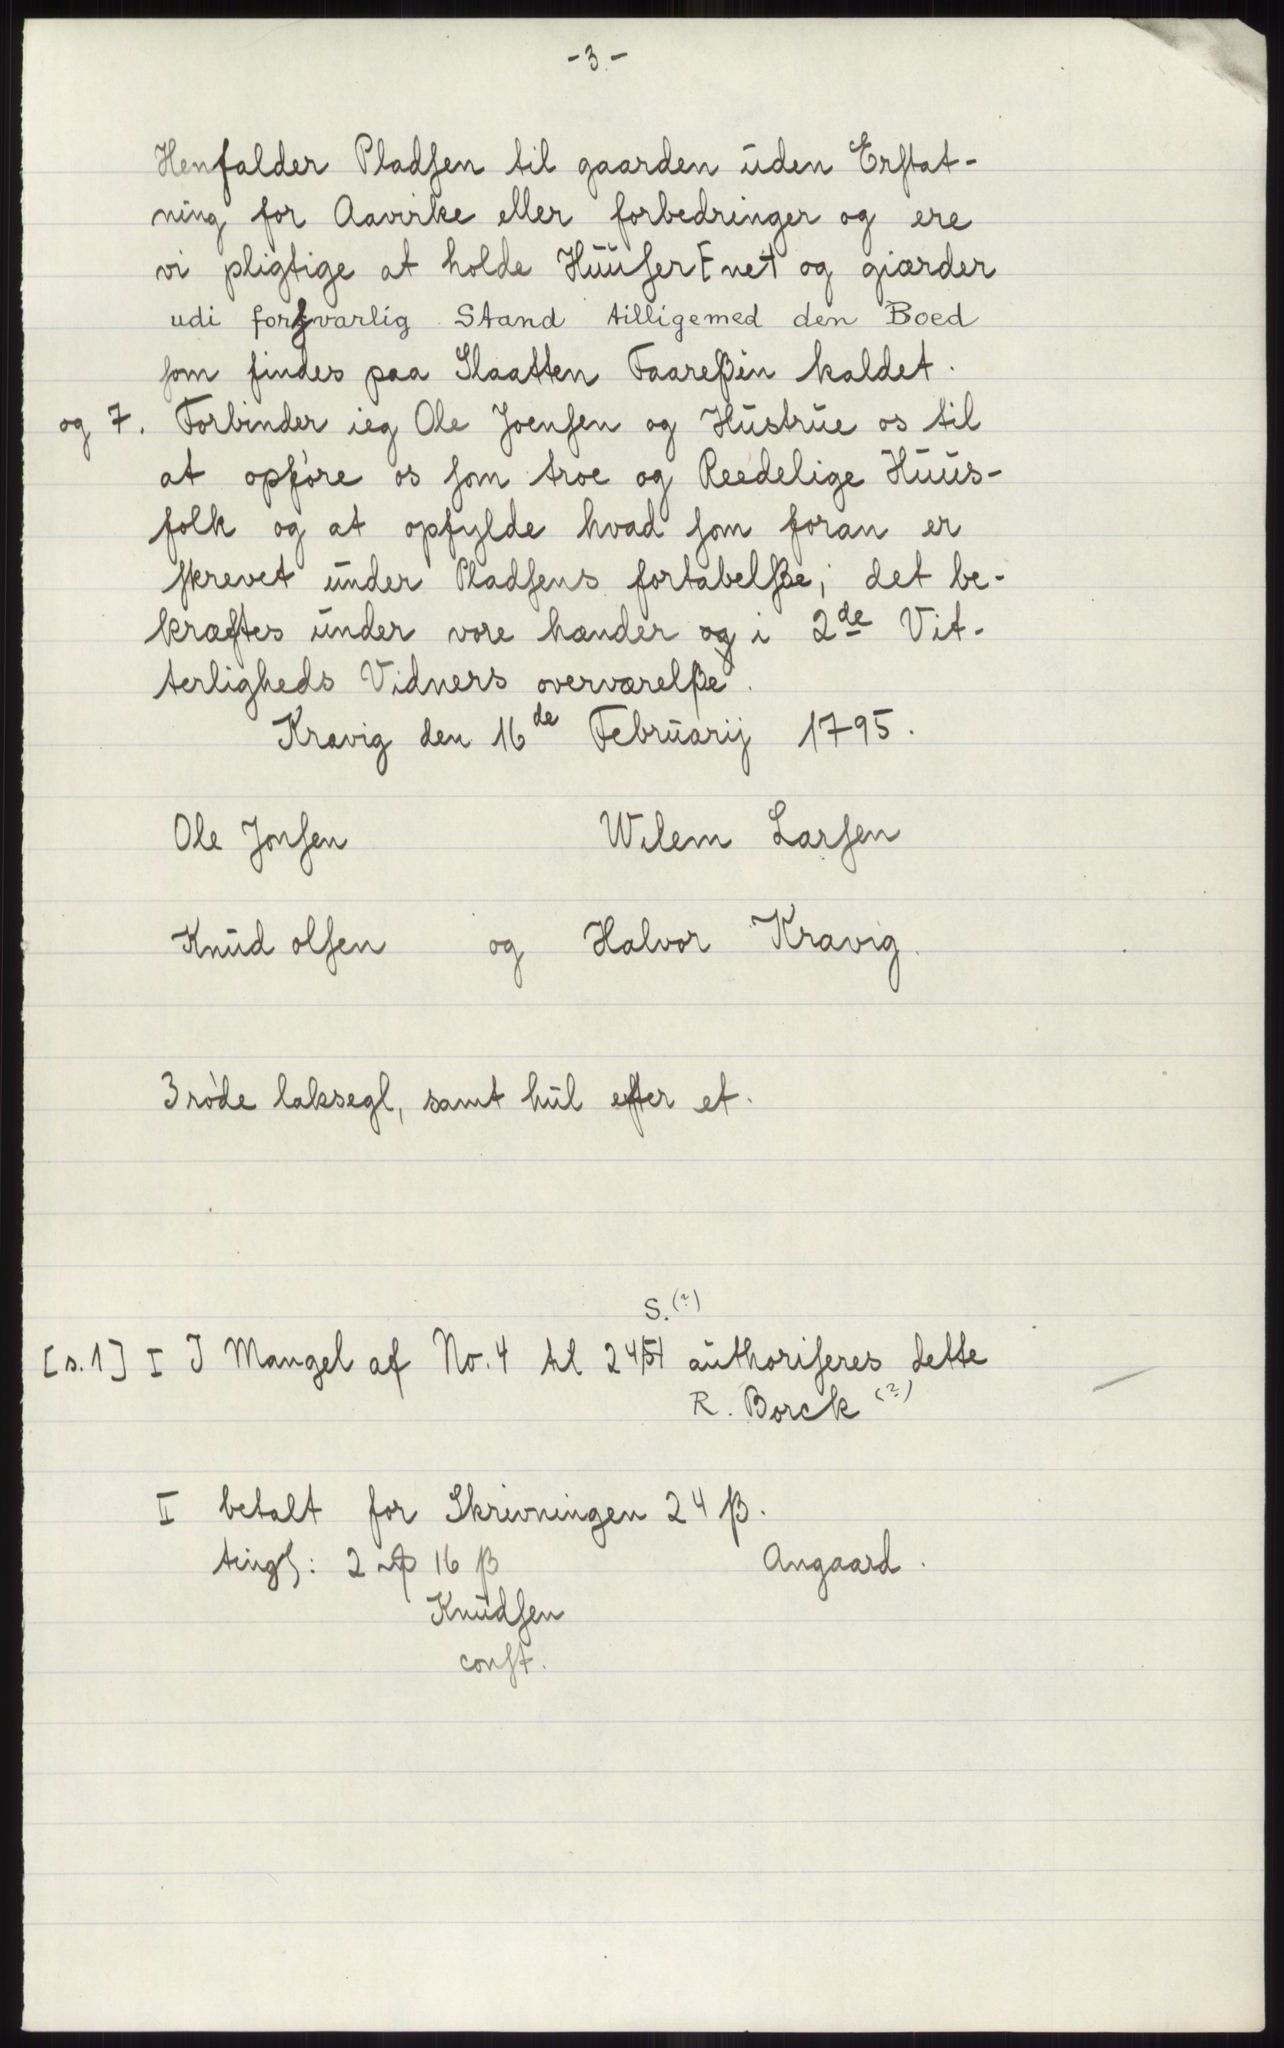 -3-
Henfalder Pladsen til gaarden uden Erstat-
ning for Aavirke eller forbedringer og ere
vi pligtige at holde Huuser[ne] og giærder
udi forsvarlig Stand tilligemed den Boed
som findes paa Slaatten Faareßin kaldet.
og 7. Forbinder ieg Ole Joensen og Hustrue os til
at opføre os som troe og Reedelige Huus-
folk og at opfylde hvad som foran er
skrevet under Pladsens fortabelsße; det be-
kræftes under vore hænder og i 2de Vit-
terligheds Vidners overværelße.
Kravig den 16de Februarij 1795.
Ole Jonsen Wilem Larsen
Knud olsen og Halvor Kravig.
3 røde laksegl, samt hul efter et.
S.(?)
[s.1] I I Mangel af No. 4 til 24 ß authoriseres dette
R. Borck (?)
II betalt for Skrivningen 24 ß.
tingl: 2 16 ß Angaard.
Knudsen
const.